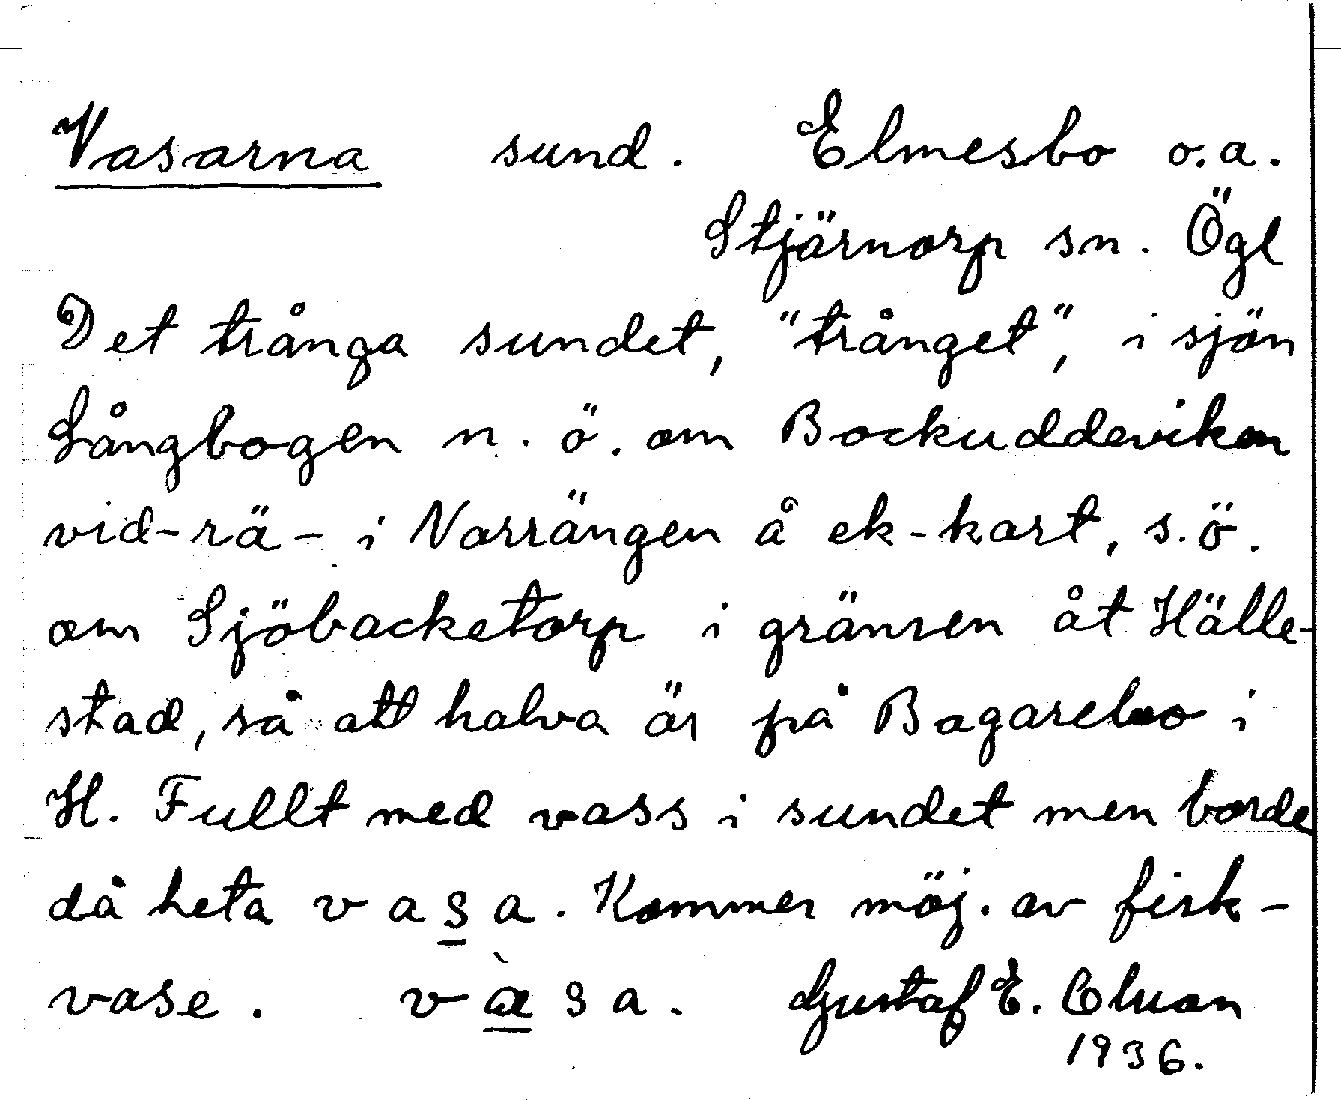 Vasarna sund. Elmesbo o.a.
Stjärnorp sn. Ögl
Det trånga sundet, "trånget", i sjön
Långbogen n.ö. om Bockuddeviken
vid-rä- i Norrängen å ek-kart, s.ö.
om Sjöbacketorp i gränsen åt Hälle-
stad, så att halva är på Bagarebo i
H. Fullt med vass i sundet men borde
då heta v a s a. Kommer möj. av fisk-
vase. v à s a. Gustaf E.
1936.